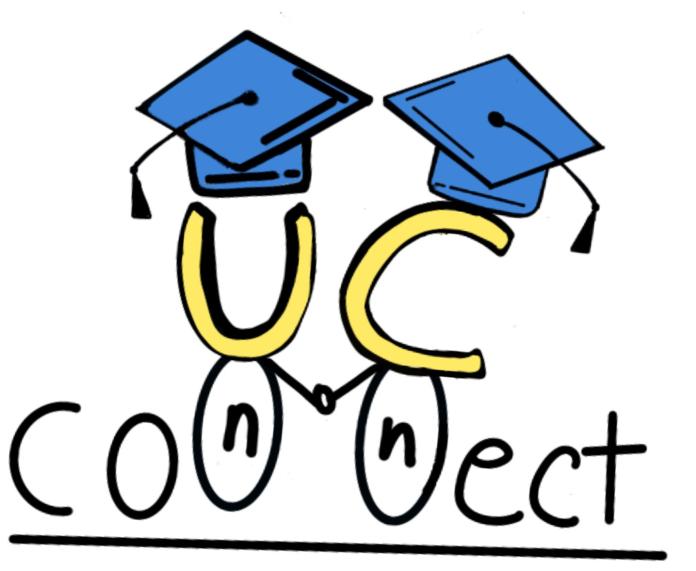 UC
connect